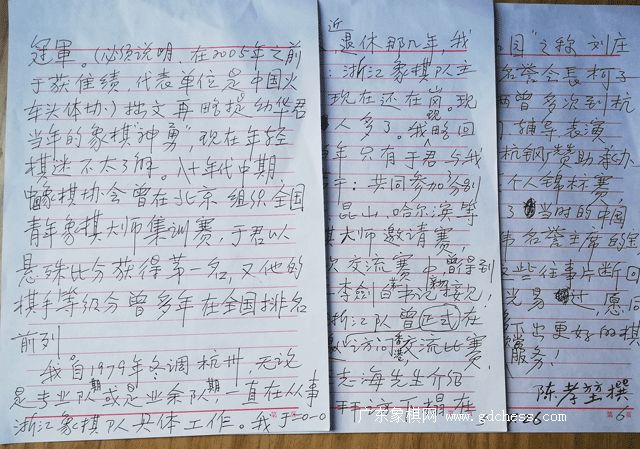 冠軍。(必须说明,在2005年之前
于获佳绩,代表单位是中国火
车头体协)拙文再略提幼华君
当年的象棋"神勇",现在年轻
棋迷不太了解。八十年代中期,
中国象棋协会曾在北京组织全国
青年象棋大师集训赛,于君以
悬殊比分获得第一名,又他的
棋手等级分曾多年在全国排名
前列
我自1979年冬调杭州,无论
是专业队期或是业余队期,一直在从事
浙江象棋队具体工作。我于二0-0
近
,退休那几年,我
:浙江象棋队主
现在还在岗。现
人多了。我略回
年只有于君与我
于:共同参加分别
昆山,哈尔滨等
大师邀请赛,
交流赛中,曾得到
李剑白书记接见,
浙江队曾正式在
访问香港交流比赛,
先海先生介绍
下榻在
"之称刘庄
名誉会長柯了
曾多次到杭
辅导表演
杭钢厂赞助举办
个人锦标赛,
了当时的中国
名誉主席的宝
些往事片断回
光易过,愿同
下出更好的棋
服务!
陈孝堃撰
6
第 页
第 页
第 页
广东象棋网:www.gdchess.com